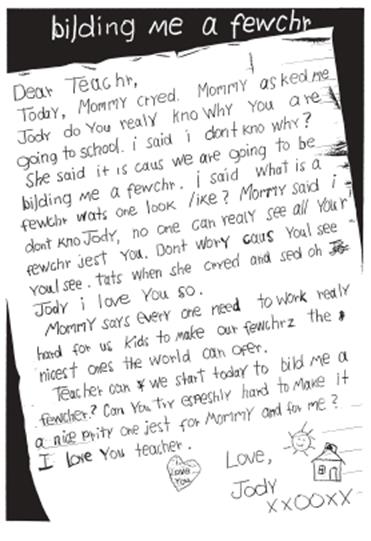 bilding me a fewchr
Dear Teachr,
Today, Mommy cryed. Mommy asked me
Jody do You realy kno Why You are
going to school. i said i dont kno why?
She said it is caus we are going to be
bilding me a fewchr. i said what is a
fewchr wats one look like? Mommy said i
dont kno Jody, no one can realy see all Your
fewchr jest You. Dont wory caus Youl see
Youl see. Tats when she cryed and sed oh
Jody i love You so.
Mommy says every one need to work realy
hard for us kids to make our fewchrz the
nicest ones the world can ofer.
Teacher can we start today to bild me a
fewcher? Can You try espeshly hard to make it
a nice prity one jest for Mommy and for me?
I love You teacher.
I
Love
You
Love,
Jody
xxooxx